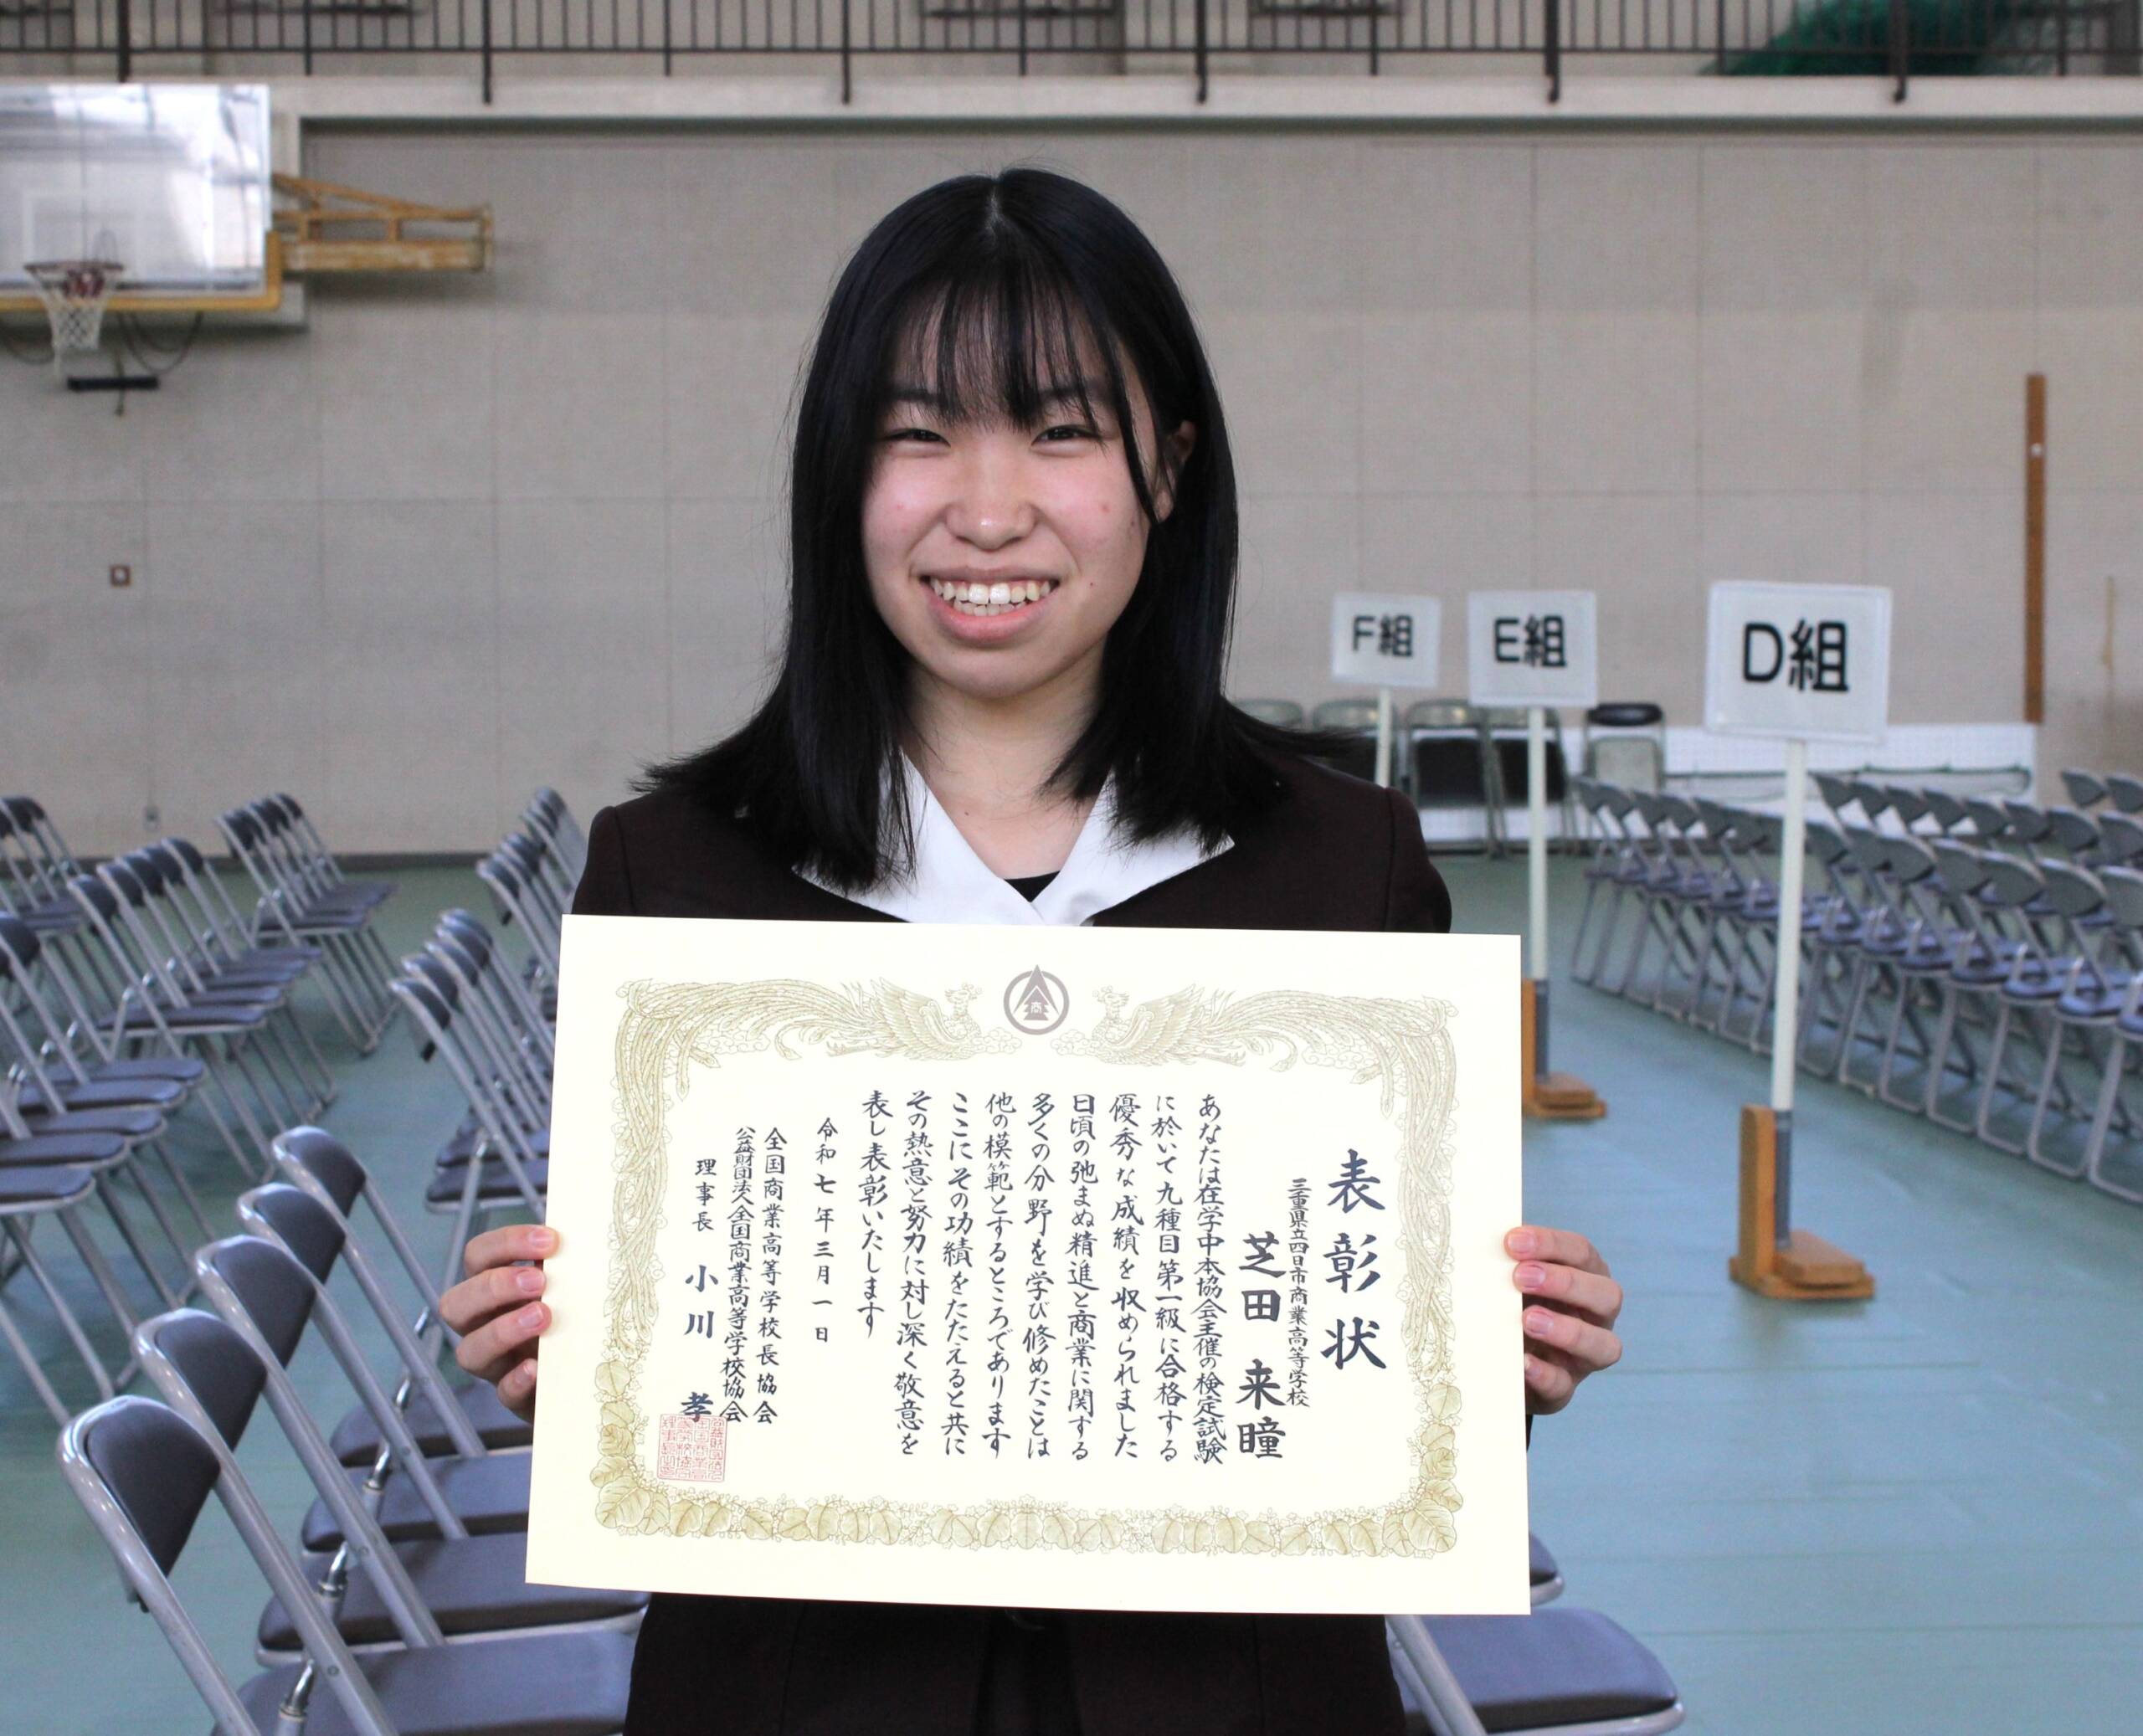 F組
E組
D組
表彰状
三重県立四日市商業高等学校
芝田 来瞳
あなたは在学中本協会主催の検定試験
に於いて九種目第一級に合格する
優秀な成績を収められました
日頃の弛まぬ精進と商業に関する
多くの分野を学び修めたことは
他の模範とするところであります
ここにその功績をたたえると共に
その熱意と努力に対し深く敬意を
表し表彰いたします
令和七年三月一日
全国商業高等学校長協会
公益財団法人全国商業高等学校協会
理事長 小川 孝
商